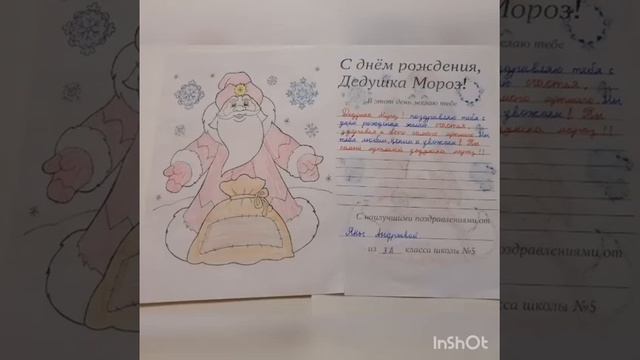 С днём рождения,
Дедушка Мороз!
В этот день желаю тебе
Дедушка Мороз! поздравляю тебя с
днём рождения желаю счастья,
здоровья и всего самого лучшего. Мы
тебя любим, ценим и уважаем! Ты
самый лучший дедушка мороз!!
С наилучшими поздравлениями от
Яны
из 3 класса школы №5
InShOt